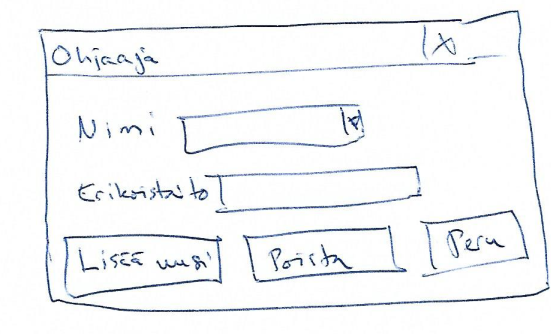 Ohjaaja X
Nimi
Erikoistaito
Lisää uusi Poista Peru